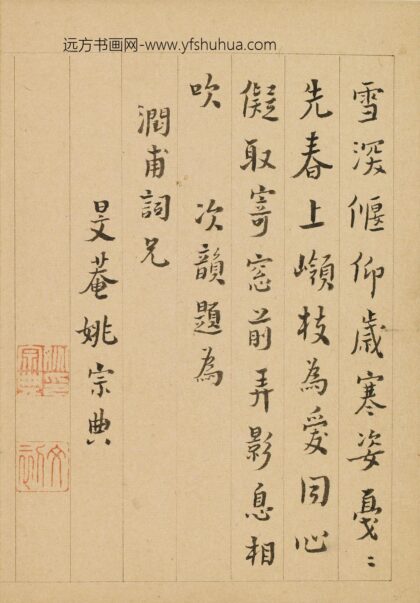 远方书画网-www.yfshuhua.com
雪深偃仰歲寒姿戞〻
先春上嶺枝為愛同心
儗取寄窓前弄影息相
吹 次韻題為
潤甫詞兄
旻菴姚宗典